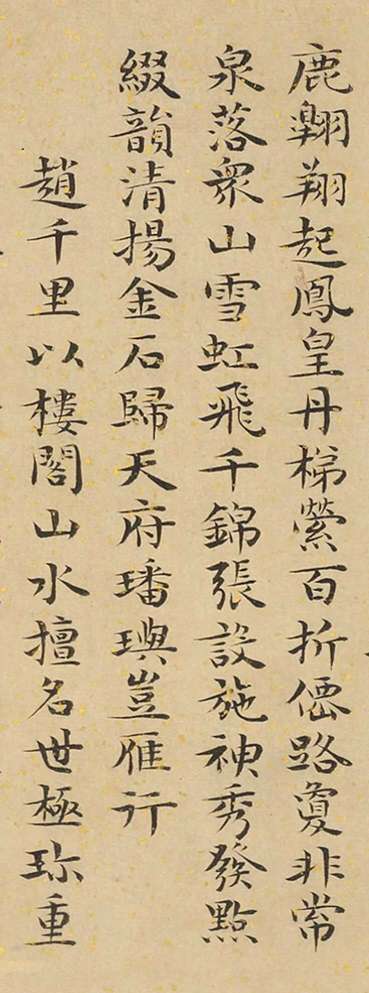 鹿翱翔起鳳皇丹梯縈百折僊路夐非常
泉落衆山雪虹飛千錦張設施神秀發點
綴韻清揚金石歸天府璠璵豈雁行
趙千里以樓閣山水擅名世極珎重